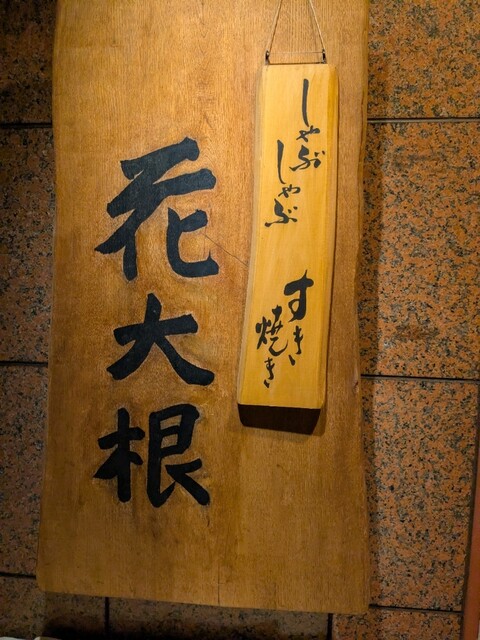 花大根
しゃぶ
しゃぶ
すき
焼き